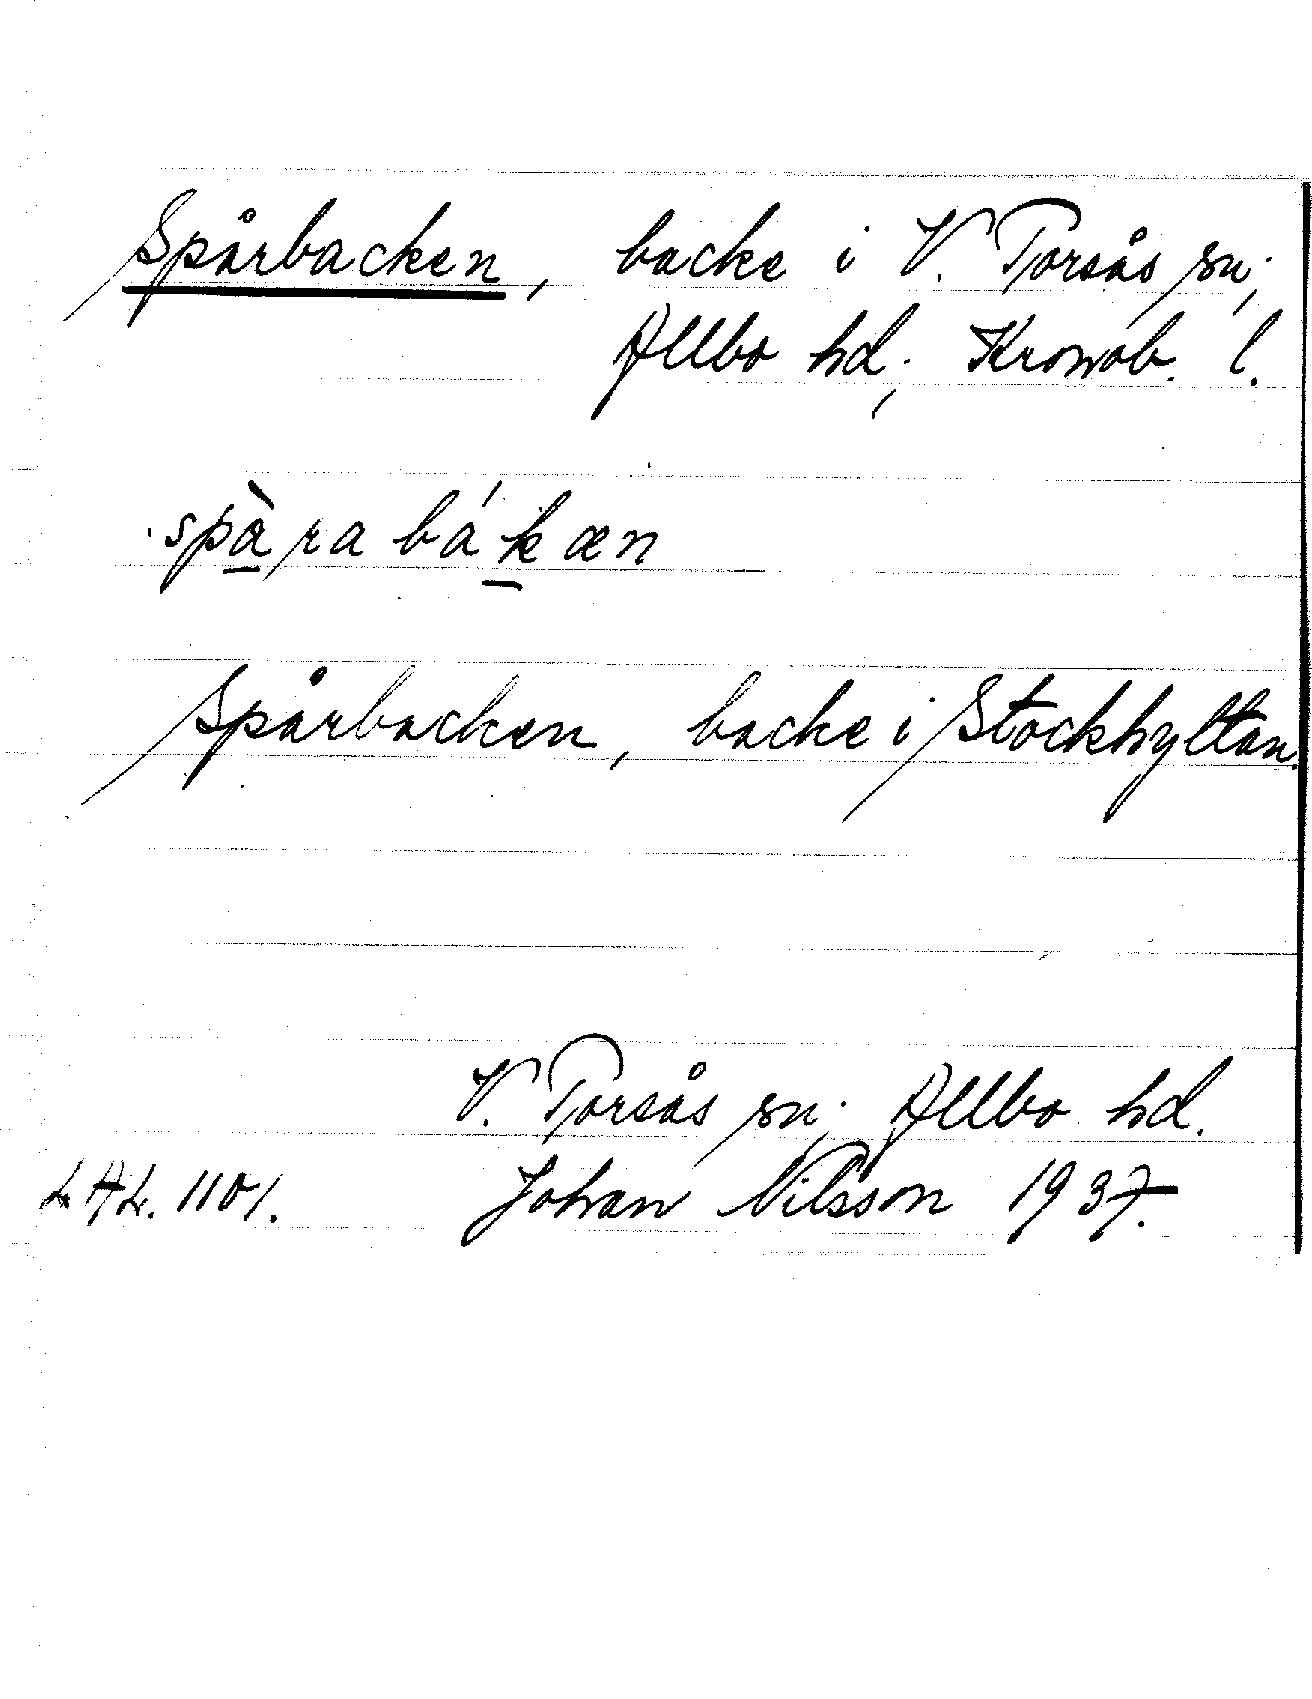 Spårbacken, backe i V. Torsås sn;
Allbo hd; Kronob. l.
spàrabákæn
Spårbacken, backe i Stockhyltan.
V. Torsås sn; Allbo hd.
LAL. 1101. Johan Nilsson 1937.